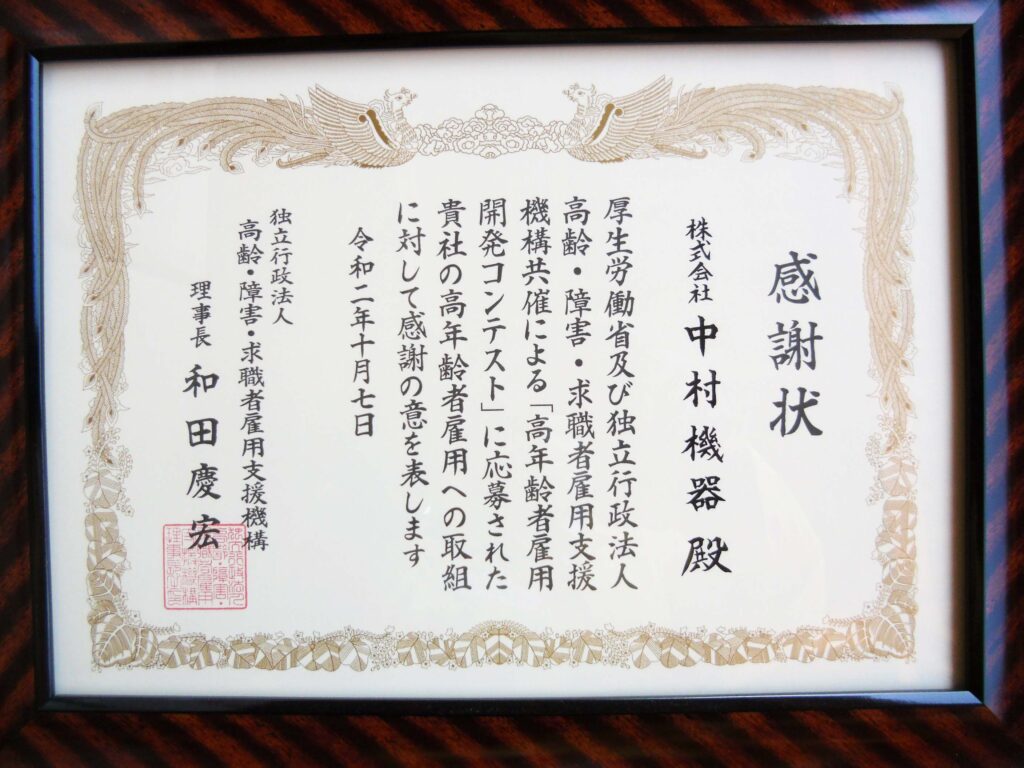 感謝状
株式会社 中村機器 殿
厚生労働省及び独立行政法人
高齢・障害・求職者雇用支援
機構共催による「高年齢者雇用
開発コンテスト」に応募された
貴社の高年齢者雇用への取組
に対して感謝の意を表します
令和二年十月七日
独立行政法人
高齢・障害・求職者雇用支援機構
理事長 和田慶宏